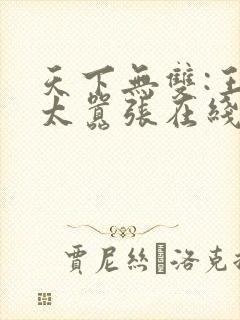 天下無雙:王
太囂張在綫
賈尼絲洛克